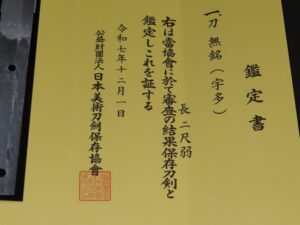 鑑定書
一、刀 無銘(宇多)
長 二尺弱
右は當協會に於て審査の結果保存刀剣と
鑑定しこれを証する
令和七年十二月一日
公益財團法人 日本美術刀劍保存協會